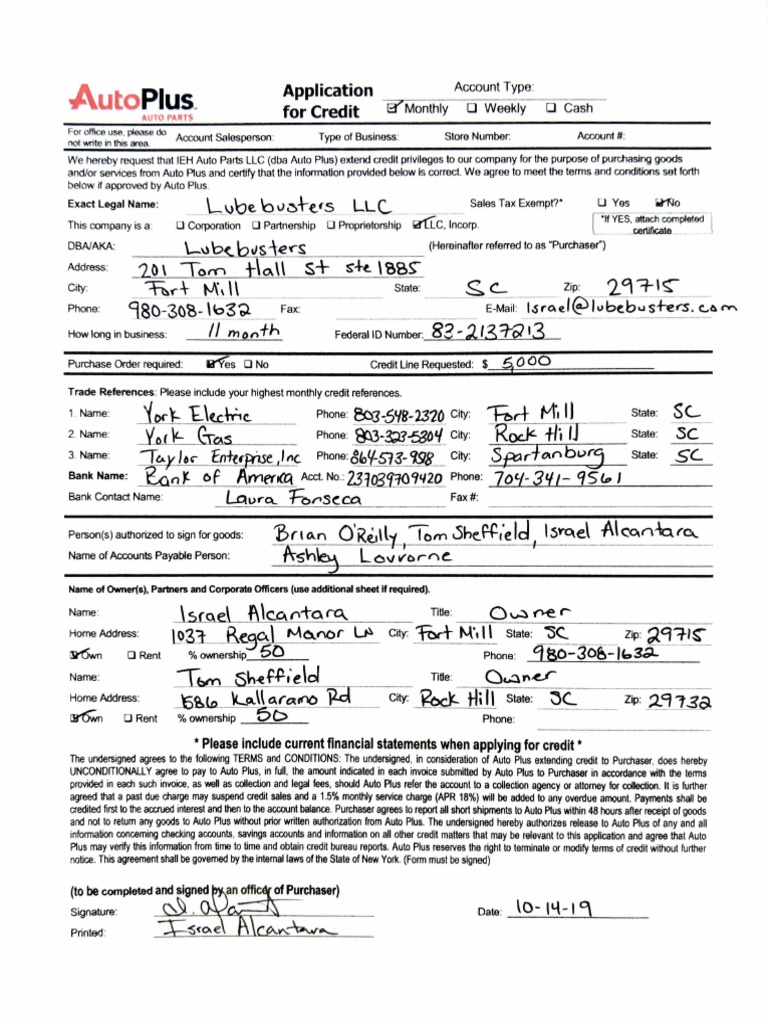 AutoPlus.
AUTO PARTS
Application for Credit
Account Type:
Monthly Weekly Cash
For office use, please do not write in this area.
Account Salesperson: Type of Business: Store Number: Account #:
We hereby request that IEH Auto Parts LLC (dba Auto Plus) extend credit privileges to our company for the purpose of purchasing goods
and/or services from Auto Plus and certify that the information provided below is correct. We agree to meet the terms and conditions set forth
below if approved by Auto Plus.
Exact Legal Name: Lubebusters LLC Sales Tax Exempt?* Yes No
This company is a: Corporation Partnership Proprietorship LLC, Incorp. *If YES, attach completed certificate
DBA/AKA: Lubebusters (Hereinafter referred to as "Purchaser")
Address: 201 Tom Hall St ste 1885
City: Fort Mill State: SC Zip: 29715
Phone: 980-308-1632 Fax: E-Mail: Israel@lubebusters.com
How long in business: 11 month Federal ID Number: 83-2137213
Purchase Order required: Yes No Credit Line Requested: $ 5,000
Trade References: Please include your highest monthly credit references.
1. Name: York Electric Phone: 803-548-2320 City: Fort Mill State: SC
2. Name: York Gas Phone: 803-323-5304 City: Rock Hill State: SC
3. Name: Taylor Enterprise, Inc Phone: 864-573- City: Spartanburg State: SC
Bank Name: Bank of America Acct. No.: 237039709420 Phone: 704-341-9561
Bank Contact Name: Laura Fonseca Fax #:
Person(s) authorized to sign for goods: Brian O'Reilly, Tom Sheffield, Israel Alcantara
Name of Accounts Payable Person: Ashley Lovrorne
Name of Owner(s), Partners and Corporate Officers (use additional sheet if required).
Name: Israel Alcantara Title: Owner
Home Address: 1037 Regal Manor LN City: Fort Mill State: SC Zip: 29715
Own Rent % ownership 50 Phone: 980-308-1632
Name: Tom Sheffield Title: Owner
Home Address: 1586 Kallaramo Rd City: Rock Hill State: SC Zip: 29732
Own Rent % ownership 50 Phone:
* Please include current financial statements when applying for credit *
The undersigned agrees to the following TERMS and CONDITIONS: The undersigned, in consideration of Auto Plus extending credit to Purchaser, does hereby
UNCONDITIONALLY agree to pay to Auto Plus, in full, the amount indicated in each invoice submitted by Auto Plus to Purchaser in accordance with the terms
provided in each such invoice, as well as collection and legal fees, should Auto Plus refer the account to a collection agency or attorney for collection. It is further
agreed that a past due charge may suspend credit sales and a 1.5% monthly service charge (APR 18%) will be added to any overdue amount. Payments shall be
credited first to the accrued interest and then to the account balance. Purchaser agrees to report all short shipments to Auto Plus within 48 hours after receipt of goods
and not to return any goods to Auto Plus without prior written authorization from Auto Plus. The undersigned hereby authorizes release to Auto Plus of any and all
information concerning checking accounts, savings accounts and information on all other credit matters that may be relevant to this application and agree that Auto
Plus may verify this information from time to time and obtain credit bureau reports. Auto Plus reserves the right to terminate or modify terms of credit without further
notice. This agreement shall be governed by the internal laws of the State of New York. (Form must be signed)
(to be completed and signed by an officer of Purchaser)
Signature: Date: 10-14-19
Printed: Israel Alcantara